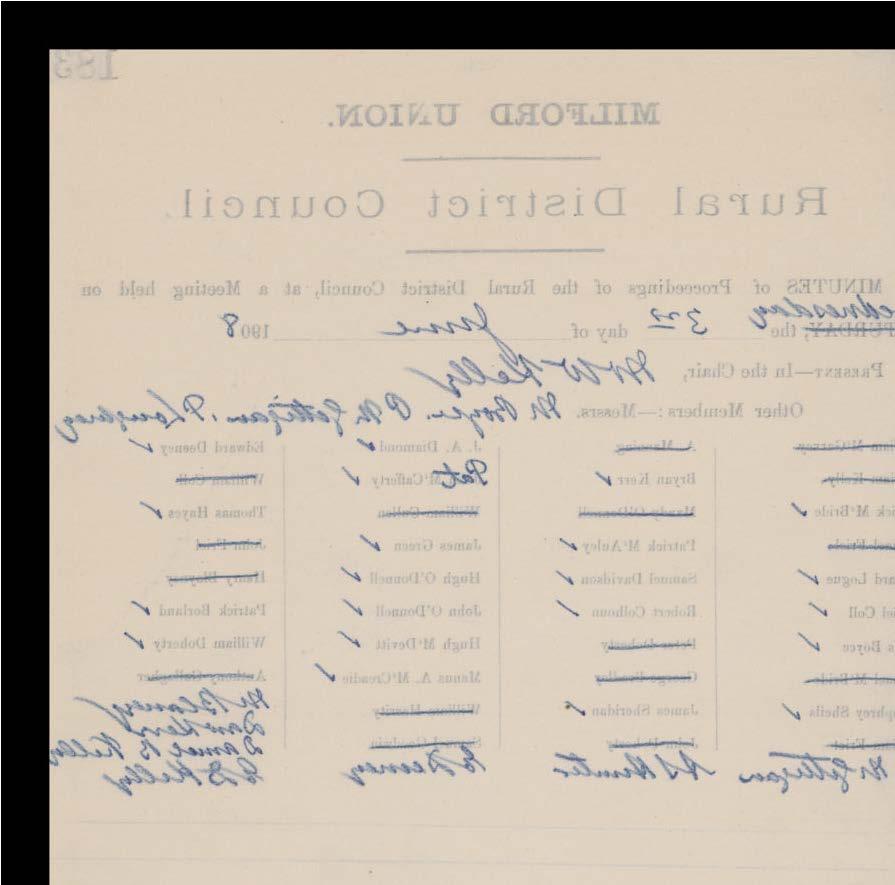 183
MILFORD UNION.
Rural District Council.
MINUTES of Proceedings of the Rural District Council, at a Meeting held on
ednesday
TURDAY, the 3rd day of June 1908
PRESENT—In the Chair, W Kelly
Other Members:—Messrs. M Boyce. P McGettigan. P Loughrey
A. Manning J. A. Diamond Edward Deeney
Kelly Bryan Kerr Pat M'Cafferty William Coll
ick M'Bride Mandy O'Donnell William Cullen Thomas Hayes
Patrick M'Auley James Green John Friel
ard Logue Samuel Davidson Hugh O'Donnell Henry Blayney
el Coll Robert Colhoun John O'Donnell Patrick Borland
s Boyce Peter Doherty Hugh M'Devitt William Doherty
M'Bride George Bradley Manus A. M'Creadie Anthony Gallagher
phrey Sheils James Sheridan William Heraty H Blaney
John Doherty Samuel Goodwin Dan Kerr
Daniel B Kelly
McGettigan A J Hunter E Deeney E B Kelly